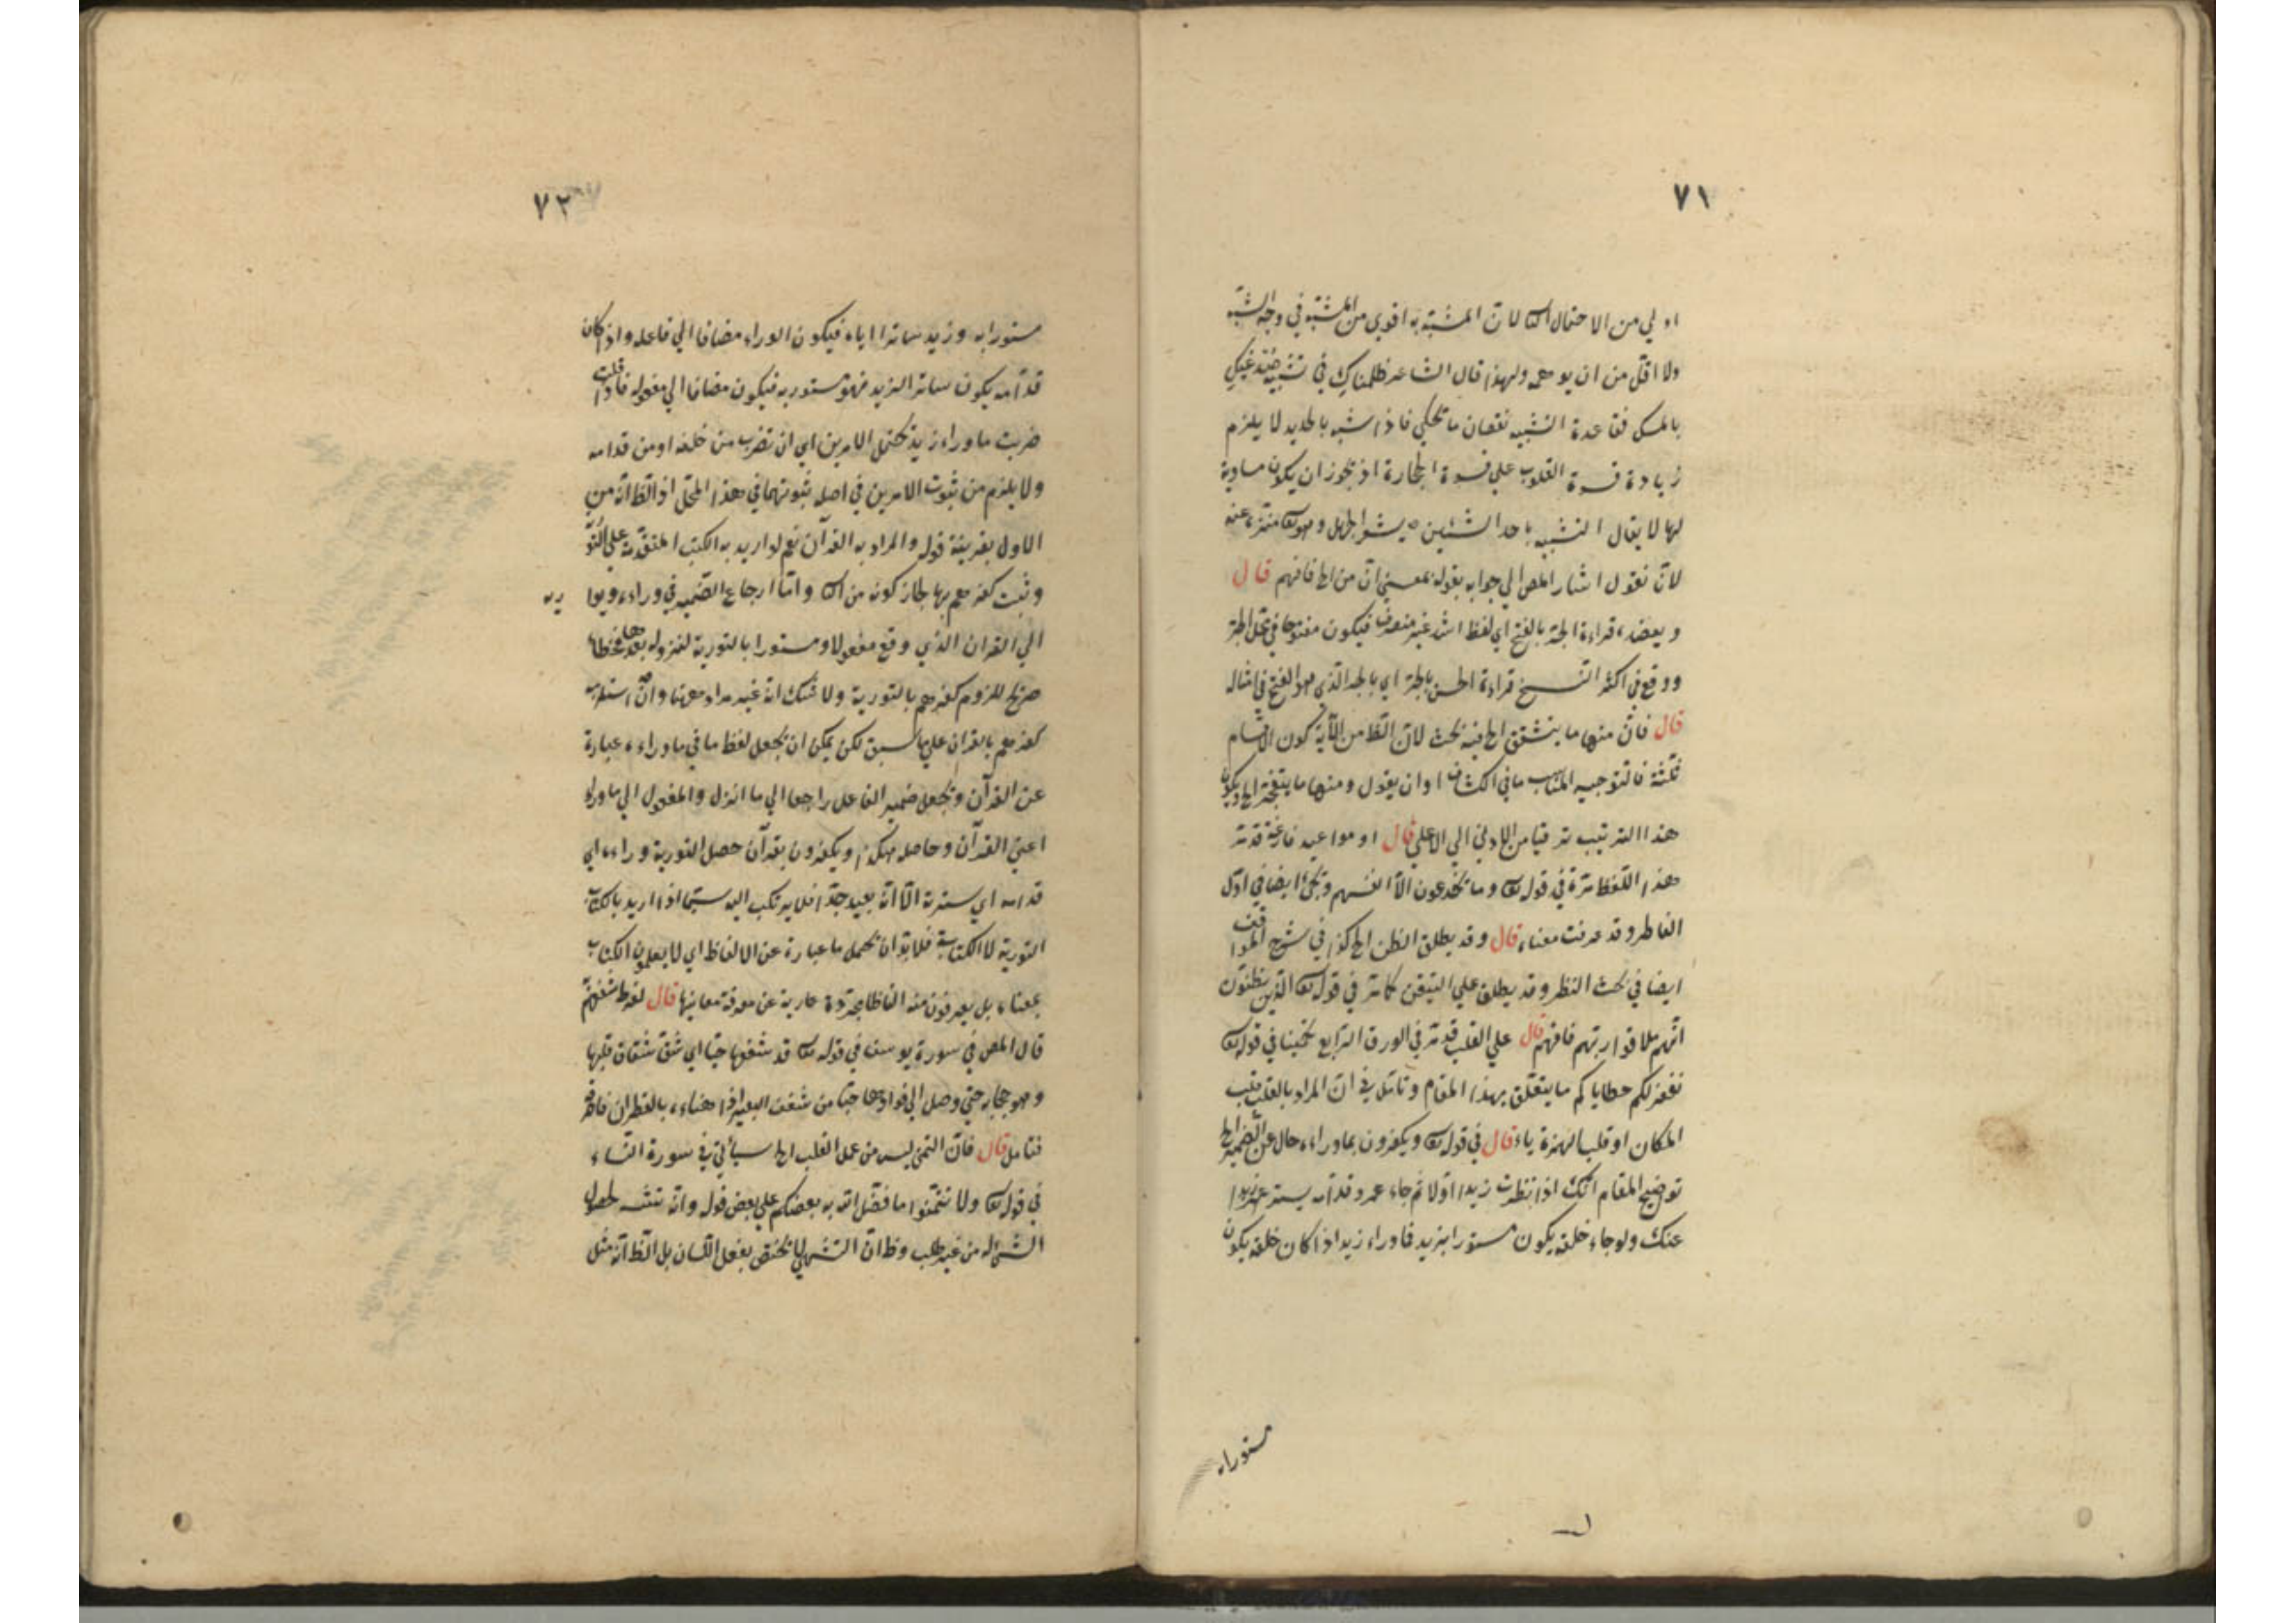 ٧١
اولي من الاحتمال الثا لان المشبه به اقوي من المشبه في وجه الشبه
ولا اقل من ان يوهمه ولهذا قال الشاعر ظلمناك في تشبيه
بالمسك فقاعدة التشبيه نقصان ما يحكي فاذا شبه بالحديد لا يلزم
زيادة قسوة القلوب علي قسوة الحجارة اذ يجوز ان يكون مساوية
لها لا يقال التشبيه باحد الشيئين يشعر الجهل وهو تعالى منزه عنه
لانّا نقول اشار المص الي جوابه بقوله بمعني ان من الخ فافهم قال
ويعضده قراءة الجر بالفتح اي لفظ اشد غير منصرف فيكون مفتوحا في محل الجر
ووقع في اكثر النسخ قراءة الحسن بالجر اي بالجر الذي هو الفتح في امثاله
قال فان منها ما يتشقق الخ فيه بحث لان الظ من الآية كون الاقسام
ثلثة فالتوجيه المناسب ما في الكشاف او ان يقول ومنها ما يتفجر الخ ويكون
هذا الترتيب ترقيا من الادني الي الاعلي قال او مواعيد فارغة قد مر
هذا اللفظ مرة في قوله تعالى وما يخدعون الا انفسهم ويجئ ايضا في اول
الفاطر وقد عرفت معناه قال وقد يطلق الظن الخ كذا في شرح المواقف
ايضا في بحث النظر وقد يطلق علي التيقن كما مر في قوله تعالى الذين يظنون
انهم ملاقوا ربهم فافهم قال علي القلب قد مر في الورق الرابع تخمينا في قوله تعالى
نغفر لكم خطاياكم ما يتعلق بهذا المقام وتامل في ان المراد بالقلب قلب
المكان او قلب الهمزة ياء قال في قوله تعالى ويكفرون بما وراءه حال عن الضمير الخ
توضيح المقام انك اذا نظرت زيدا اولا ثم جاء عمرو قدامه يستر عمرو زيدا
عنك ولو جاء خلفه يكون مستورا بزيد فما وراء زيد اذا كان خلفه يكون
مستورا به
٧٢
مستورا به وزيد ساترا اياه فيكون الوراء مضافا الي فاعله واذا كان
قدامه يكون ساترا لزيد فهو مستور به فيكون مضافا الي مفعوله فاذا قلت
ضربت ما وراء زيد يحتمل الامرين اي ان تضرب من خلفه او من قدامه
ولا يلزم من ثبوت الامرين في اصله ثبوتهما في هذا المحل اذ الظ انه من
الاول بقرينة قوله والمراد به القرآن نعم لو اريد به الكتب المتقدمة علي التو
رية
وثبت كفرهم بها لجاز كونه من الثا واما ارجاع الضمير في وراءه ويوا
الي القران الذي وقع مفعولا ومستورا بالتورية لنزوله بعدها فخطاء
صريح للزوم كفرهم بالتورية ولا شك انه غير مراد ههنا وان استلزمه
كفرهم بالقران علي ما سبق لكن يمكن ان يجعل لفظ ما في ما وراءه عبارة
عن القرآن ويجعل ضمير الفاعل راجعا الي ما انزل والمفعول الي ما وراء
اعني القرآن وحاصله هكذا ويكفرون بقرآن حصل التورية وراءه اي
قدامه اي سترته الا انه بعيد جدا فلا يرتكب اليه سيما اذا اريد بالكتاب
التورية لا الكتابة فلا بد ان يحمل ما عبارة عن الالفاظ اي لا يعلمون الكتاب
بمعناه بل يعرفون منه الفاظا مجردة عارية عن معرفة معانيها قال لفرط شغفهم
قال المص في سورة يوسف في قوله تعالى قد شغفها حبا اي شق شغاف قلبها
وهو حجابه حتي وصل الي فوادها حبا من شغف البعير اذا هناءه بالقطران فاحرقه
فتامل قال فان التمني ليس من عمل القلب الخ سيأتي في سورة النساء
في قوله تعالى ولا تتمنوا ما فضل الله به بعضكم علي بعض قوله وانه تشه لحصول
الشئ له من غير طلب وظ ان التشهي لا يختص بفعل اللسان بل الظ انه مثل